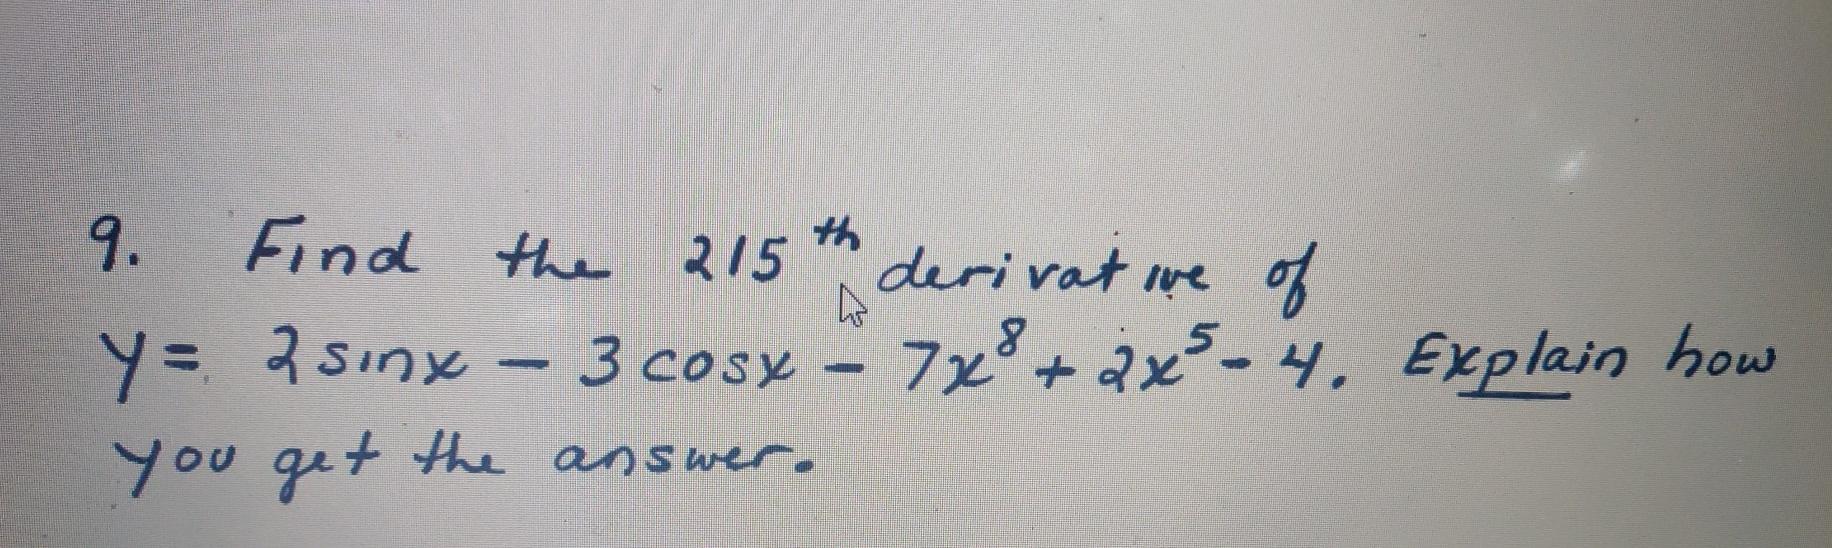 9. Find the 215th derivative of
y = 2 sinx - 3 cosx - 7x⁸ + 2x⁵ - 4. Explain how
you get the answer.